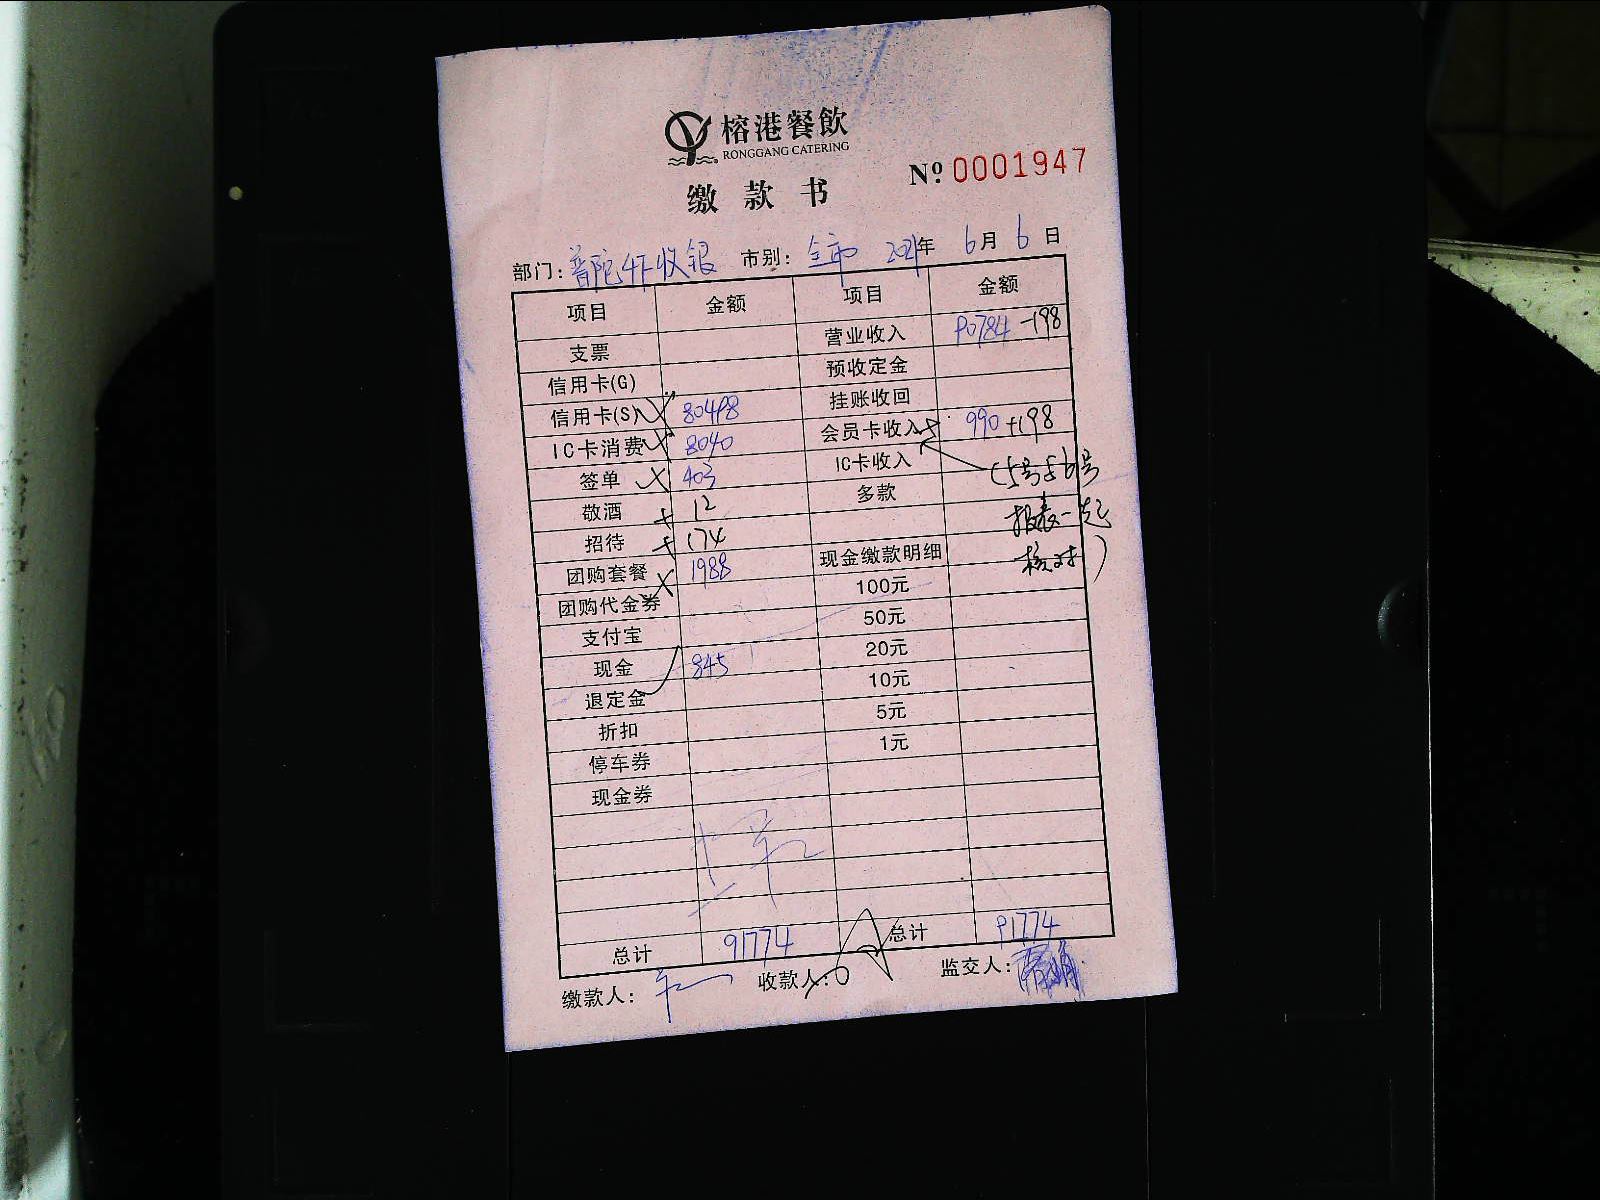 榕港餐飲
RONGGANG CATERING
缴款书
Nº 0001947
部门: 普陀 收银 市别: 全市 2021年 6月 6日
项目 金额 项目 金额
支票 营业收入 90784 -198
信用卡(G) 预收定金
信用卡(S) 80498 挂账收回
IC卡消费 8040 会员卡收入 990 +198
签单 403 IC卡收入 (5号与6号
敬酒 12 多款 报表一起
招待 174 核对)
团购套餐 1988 现金缴款明细
团购代金券 100元
支付宝 50元
现金 845 20元
退定金 10元
折扣 5元
停车券 1元
现金券
总计 91774 总计 91774
缴款人: 收款人: 监交人: